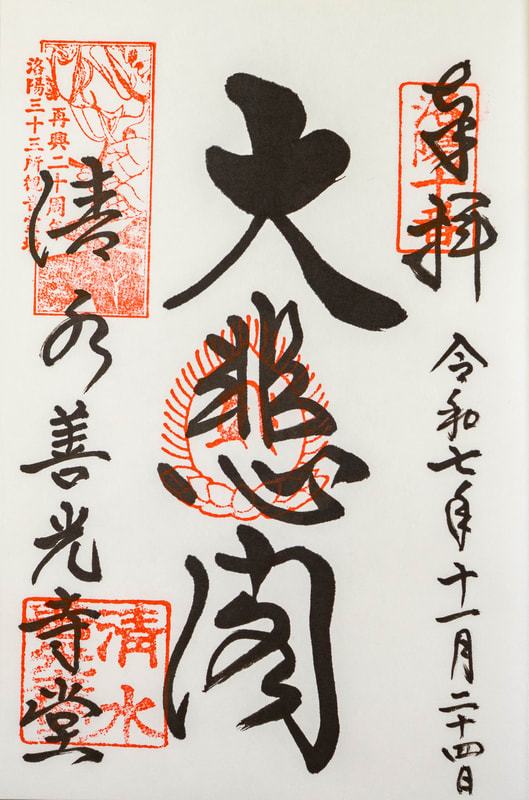 奉拝
洛陽十番
令和七年十一月二十四日
大悲閣
再興二十周
洛陽三十三所
清水善光寺堂
清水